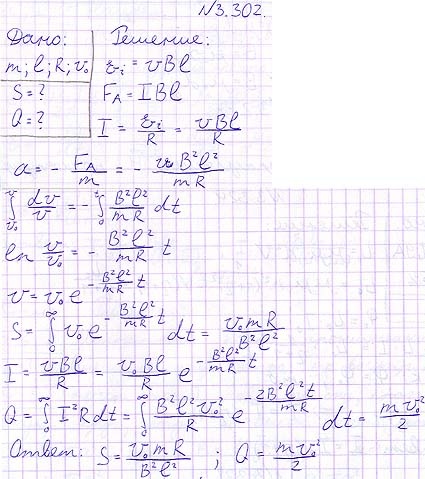 N3.302.
Дано: Решение:
m; l; R; v₀ ℰᵢ = vBl
S = ? F_A = IBl
Q = ? I = ℰᵢ/R = vBl/R
a = - F_A/m = - vB²l²/mR
∫_{v₀}^{v} dv/v = - ∫_{0}^{t} B²l²/mR dt
ln v/v₀ = - B²l²/mR t
v = v₀ e^{- B²l²/mR t}
S = ∫_{0}^{∞} v₀ e^{- B²l²/mR t} dt = v₀mR/B²l²
I = vBl/R = v₀Bl/R e^{- B²l²/mR t}
Q = ∫_{0}^{∞} I²R dt = ∫_{0}^{∞} B²l²v₀²/R e^{- 2B²l²t/mR} dt = mv₀²/2
Ответ: S = v₀mR/B²l² ; Q = mv₀²/2